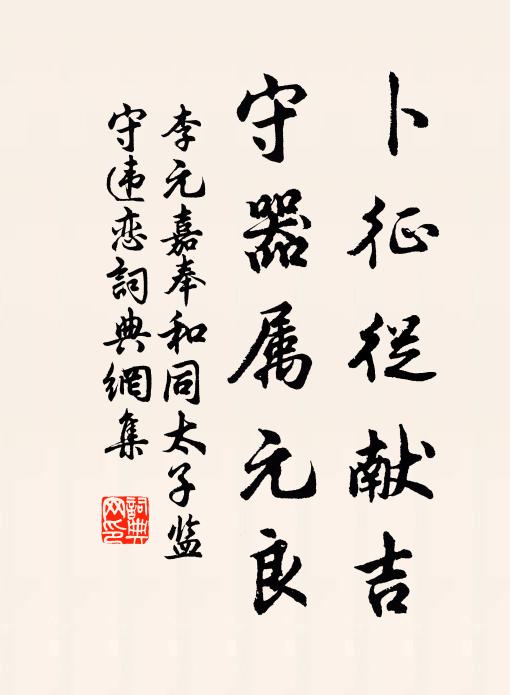 卜征從献吉
守器属元良
李元嘉奉和同太子监
守违恋詞典網集
詞典
网印